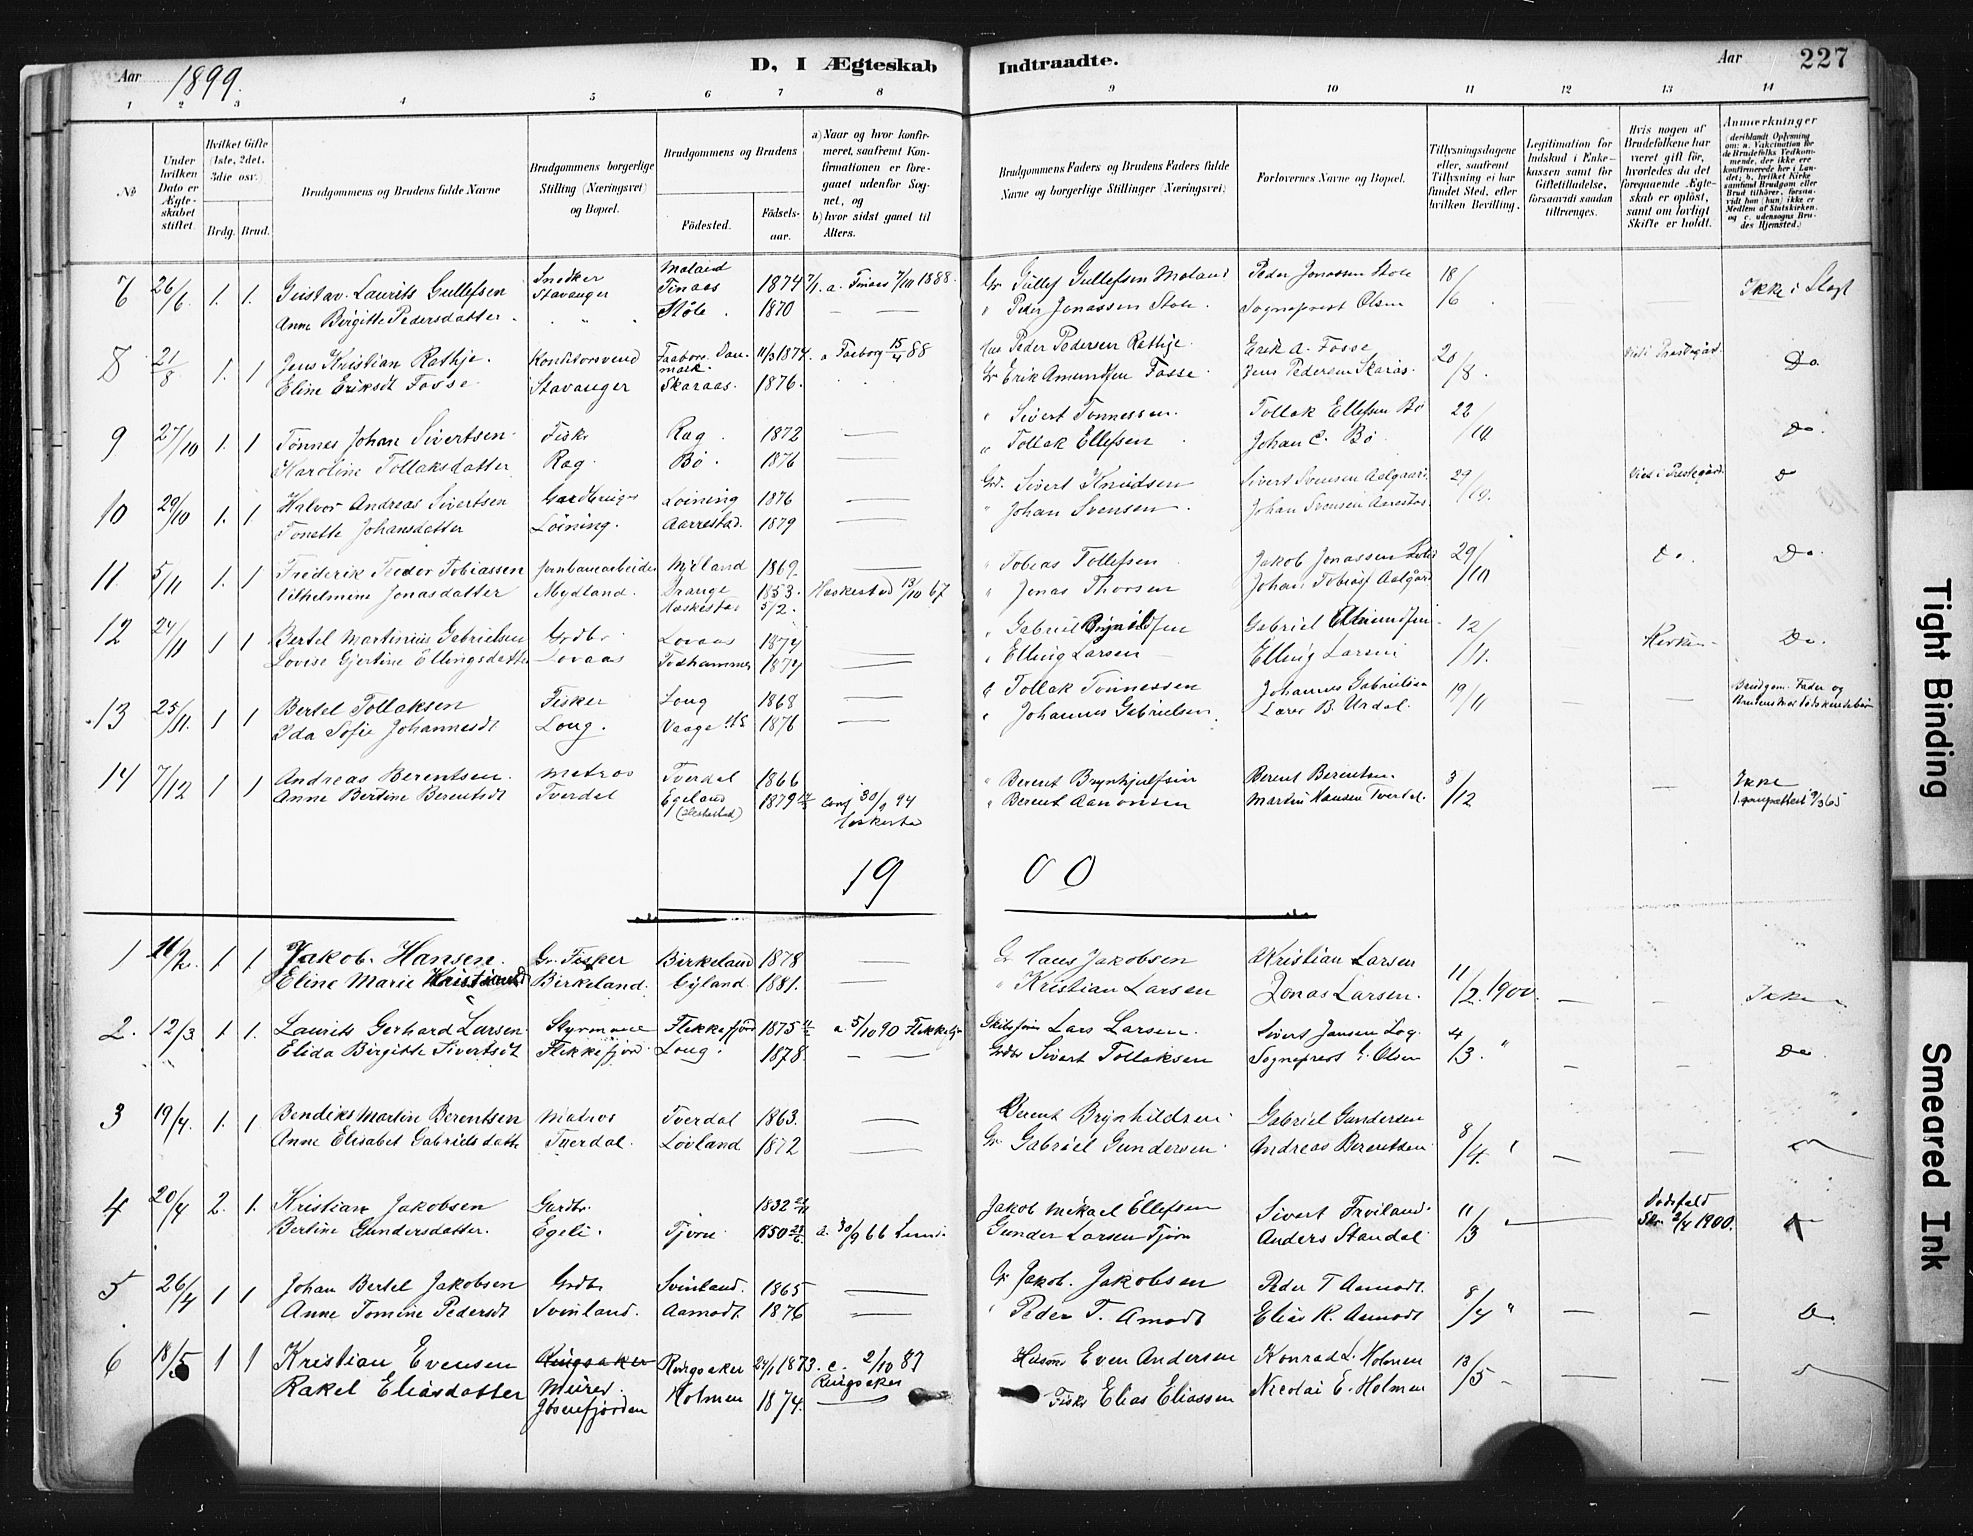 Aar 1899.
D, I Ægteskab Indtraadte.
Aar 227
1 2 3 4 5 6 7 8 9 10 11 12 13 14
No
Under hvilken Dato er Ægteskabet stiftet.
Hvilket Gifte (1ste, 2det, 3die osv.)
Brdg. Brud.
Brudgommens og Brudens fulde Navne
Brudgommens borgerlige Stilling (Næringsvei) og Bopæl.
Brudgommens og Brudens
Fødested.
Fødselsaar.
a) Naar og hvor konfirmeret, saafremt Konfirmationen er foregaaet udenfor Sognet, og
b) hvor sidst gaaet til Alters.
Brudgommens Faders og Brudens Faders fulde Navne og borgerlige Stillinger (Næringsvei)
Forlovernes Navne og Bopæl.
Tillysningsdagene eller, saafremt Tillysning ei har fundet Sted, efter hvilken Bevilling.
Legitimation for Indskud i Enkekassen samt for Giftetilladelse, forsaavidt saadan tiltrænges.
Hvis nogen af Brudefolkene har været gift før, hvorledes da det foregaaende Ægteskab er opløst, samt om lovligt Skifte er holdt.
Anmærkninger
(deriblandt Oplysning om: a. Vakcination for de Brudefolks Vedkommende, der ikke ere konfirmerede her i Landet; b. hvilket Kirkesamfund Brudgom eller Brud tilhører, forsaavidt han (hun) ikke er Medlem af Statskirken, og c. udensogns Brudes Hjemsted.)
7 26/6 1. 1. Gustav Laurits Gullefsen Snedker Moland Tinaas 1874 7/1. a. Tinaas 7/10 1888. Gr Gullef Gullefsen Moland Peder Jonassen Stole 18/6 Ikke i Slegt
Anne Birgitte Pedersdatter Stavanger Støle 1870 — — " Peder Jonassen Stole Sogneprest Olsen
8 21/8 1. 1. Jens Kristian Rathje Konditorsvend Faaborg Danmark 11/3 1874. a Faaborg 15/4 88 Peder Pedersen Rathje Erik A. Fosse 20/8. Viet i Prestegård Do.
Eline Eriksdt Fosse Stavanger Skaraas. 1876. Gr Erik Amundsen Fosse Jens Pedersen Skarås
9 27/10 1. 1 Tønnes Johan Sivertsen Fisker Rag 1872 — " Sivert Tønnessen Tollak Ellefsen Bö 22/10 Do.
Karoline Tollaksdatter Rag. Bö. 1876 — " Tollak Ellefsen Johan C. Bö
10 29/10 1. 1 Halvor Andreas Sivertsen Gardbruger Løining 1876 — Grd. Sivert Knudsen Sivert Svensen Aalgaard 29/10. Viet i Prestegård D
Tonette Johansdatter Løining. Aarrestad. 1879 — " Johan Svensen Johan Svensen Aarestad
11 5/11 1. 1 Frederik Teodor Tobiassen Jernbanearbeider Mydland 1869 — " Tobias Tollefsen Jakob Jonassen 29/10 Do. Do.
Vilhelmine Jonasdatter Mydland. Drange Haskestad 1853. 5/2. Haskestad 13/10 67 " Jonas Thorsen Johan Tobiass Aalgård
12 24/11 1 1 Bertel Martinius Gabrielsen Grdbr Lovaas 1874 — " Gabriel Gabriel 12/11. Kirken Do.
Lovise Gjertine Ellingsdatter Lovaas Fedhammer 1874 — " Elling Larsen Elling Larsen
13 25/11. 1 1 Bertel Tollaksen Fisker Loug 1868 — Tollak Tönnessen Johannes Gabrielsen 19/11 — Brudgom. Fader og
Ida Sofie Johannesdt Loug. Vaage 1876 — " Johannes Gabrielsen. Lærer B. Urdal. Brudens Mor
14 7/12 1 1 Andreas Berentsen. Matros Tverdal 1866 " Berent Brynhjulfsen Berent Berentsen. 3/12 — Ikke
Anne Bertine Berentsdt Tverdal Egeland 1879 Conf 30/9 94 Haskestad " Berent Aanonsen Martin Hansen Tverdal.
19 00
1 11/2. 1 1. Jakob Hansen. Gr. Fisker Birkeland 1878 — Gr Hans Jakobsen Kristian Larsen 11/2. 1900. — — Ikke
Eline Marie Kristiansdt Birkeland. Gyland 1881. — " Kristian Larsen Jonas Larsen.
2. 12/3 1 1. Laurits Gerhard Larsen Styrmand Flekkefjord 1875 a 5/10 90 Flekkefj Lars Larsen. Sivert Jansen Log. 4/3. " Do
Elida Birgitte Sivertsdt Flekkefjord Loug. 1878. — — Grdbr Sivert Tollaksen Sogneprest Olsen
3 19/4. 1. 1 Bendiks Martin Berentsen Matros Tverdal 1863. — Berent Brynhildsen Gabriel Gundersen 8/4. " — —
Anne Elisabet Gabrielsdatter Tverdal. Lovland 1872 — Gr Gabriel Gundersen Andreas Berentsen
4 20/4 2. 1. Kristian Jakobsen Gardbr. 1832 Jakob Mikael Ellefsen Sivert Froiland 11/3 Dødsfald
Bertine Gundersdatter. Egeli. Tjörn 1850 a. 30/9 66 Lund Gunder Larsen Tjörn Anders Standal Sk. 2/4 1900.
5 26/4 1 1 Johan Bertel Jakobsen Grdbr Svinland. 1865 — Gr Jakob. Jakobsen Peder T Aamodt. 8/4 " — — D
Anne Tomine Pedersdt Svinland. Aamodt. 1876 — " Peder T. Amodt Elias K. Aamodt
6 18/5 1 1 Kristian Evensen Ringsaker Ringsaker 24/1 1873. c. 2/10 87 Ringsaker Husmd Even Andersen Konrad L. Holmen 13/5 — —
Rakel Eliasdatter Murer Jøssenfjorden Holmen 1874. — Fisker Elias Eliassen Nicolai E. Holmen
Tight Binding
Smeared Ink